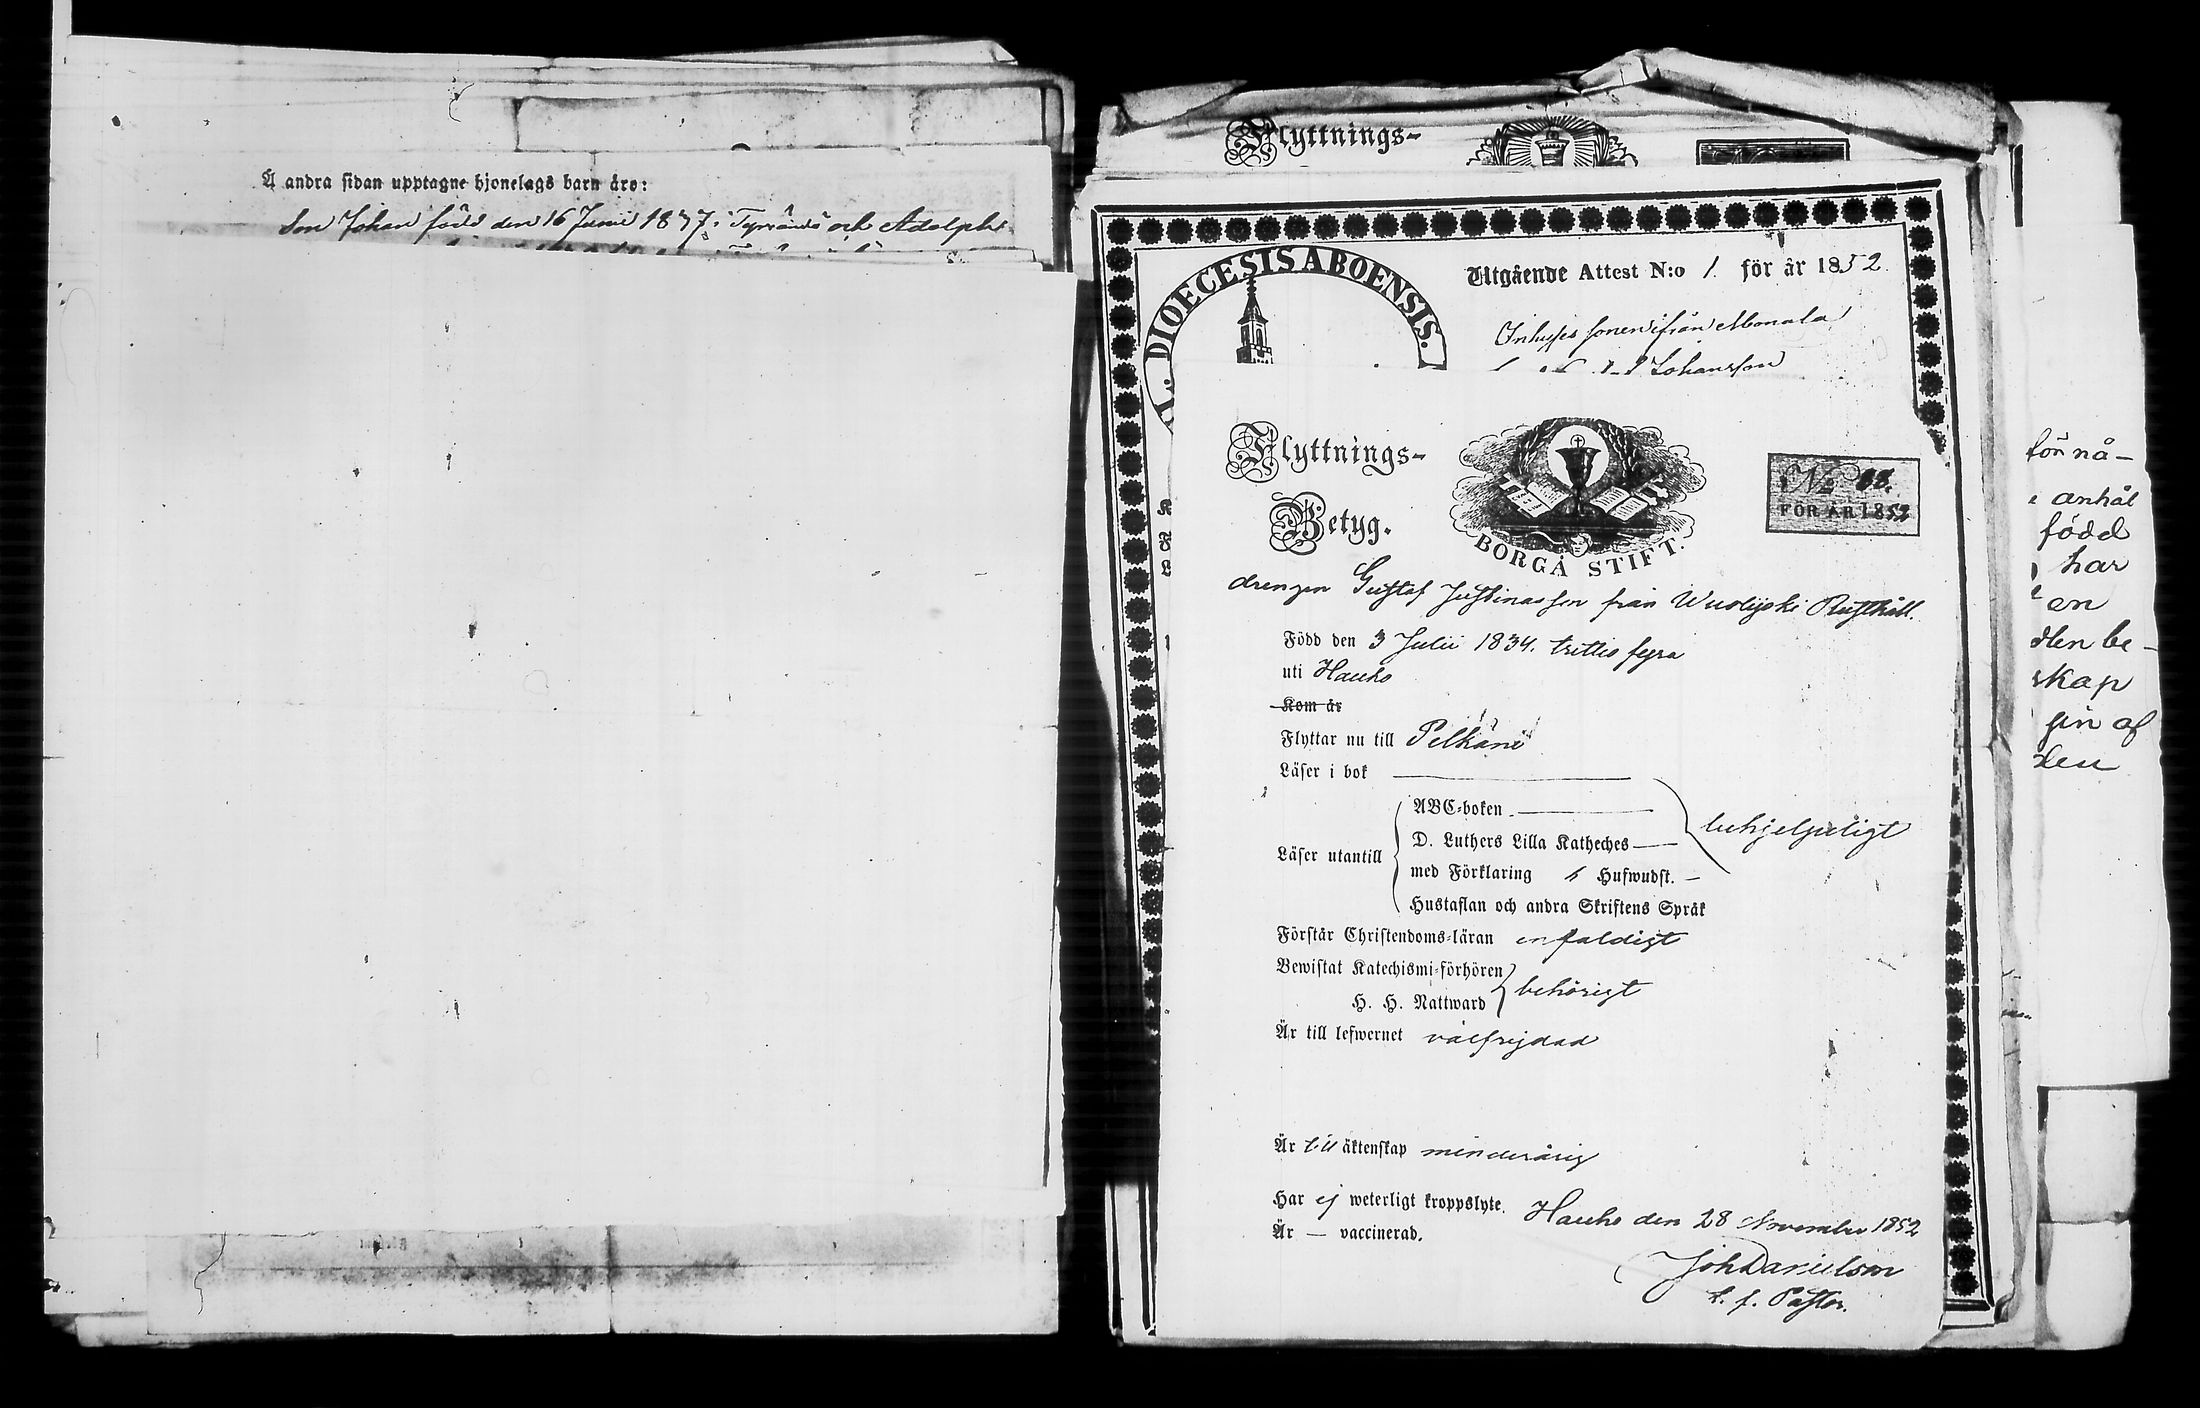 Å andra sidan upptagne hjonelags barn äro:
Son Johan född den 16 Junii 1837 i Tyrvändö och Adolph
Flyttnings-
A. DIOECESIS ABOENSIS.
Utgående Attest N:o 1 för år 1852.
Inhyses sonen ifrån Monala
Johansson
Flyttnings-
Betyg.
BORGÅ STIFT.
No 88.
FÖR ÅR 1852
drengen Gustaf Justinasson från Wuolijoki Rusthåll.
Född den 3 Julii 1834. trettio fyra
uti Hauho
Kom år
Flyttar nu till Pelkäne
Läser i bok
Läser utantill
ABC-boken
D. Luthers Lilla Katheches
med Förklaring Hufwudst.
Hustaflan och andra Skriftens Språk
behjelpeligt
Förstår Christendoms-läran enfaldigt
Bewistat Katechismi-förhören
H. H. Nattward
behörigt
Är till lefwernet välfrejdad
Är till äktenskap minderårig
Har ej weterligt kroppslyte.
Är — vaccinerad.
Hauho den 28 November 1852
Joh Danielson
t. f. Pastor.
för nå-
anhål
född
har
en
den be-
skap
gin af
den